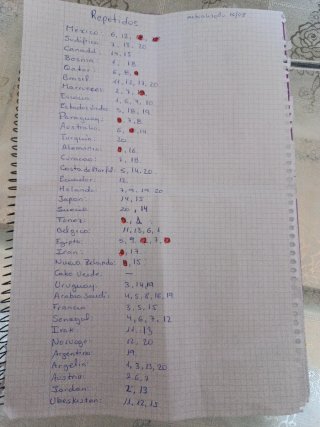 Repetidos
actualizado 16/05
Mexico: 6, 12,
Sudáfrica: 7, 13, 20
Canadá: 14, 15
Bosnia: 1, 18
Qatar: 6, 8,
Brasil: 11, 12, 17, 20
Marruecos: 2, 7,
Escocia: 1, 6, 9, 20
Estados Unidos: 5, 18, 19
Paraguay: 7, 8
Australia: 6, 14
Turquia: 20
Alemania: 16
Curacao: 7, 18
Costa de Marfil: 5, 14, 20
Ecuador: 12
Holanda: 7, 9, 19, 20
Japon: 14, 15
Suecia: 20, 14
Túnez:
Bélgica: 11, 13, 6, 1
Egipto: 5, 9, 7,
Iran: 17
Nueva Zelanda: 15
Cabo Verde: —
Uruguay: 3, 14, 19
Arabia Saudi: 4, 5, 8, 16, 19
Francia: 3, 5, 15
Senegal: 4, 6, 7, 12
Irak: 11, 13
Noruega: 12, 20
Argentina: 19,
Argelia: 1, 3, 13, 20
Austria: 2, 6, 7
Jordan: 2, 13
Uzbekistan: 11, 12, 15